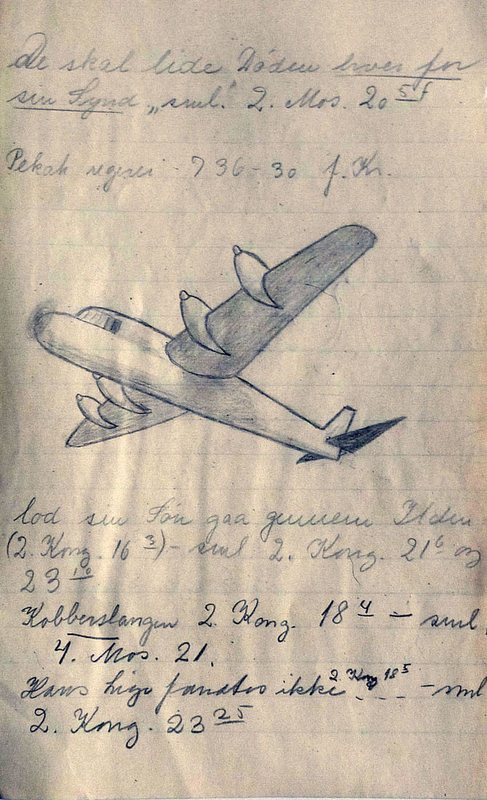 De skal lide Døden hver for
sin Synd „sml." 2. Mos. 20 5 f
Pekah regerer 736-30 f. Kr.
lod sin Søn gaa gennem Ilden
(2. Kong. 16 3) - sml 2. Kong. 21 6 og
23 10
Kobberslangen 2. Kong. 18 4 - sml.
4. Mos. 21.
Hans lige fandtes ikke 2 Kong 18 5 - sml
2. Kong. 23 25